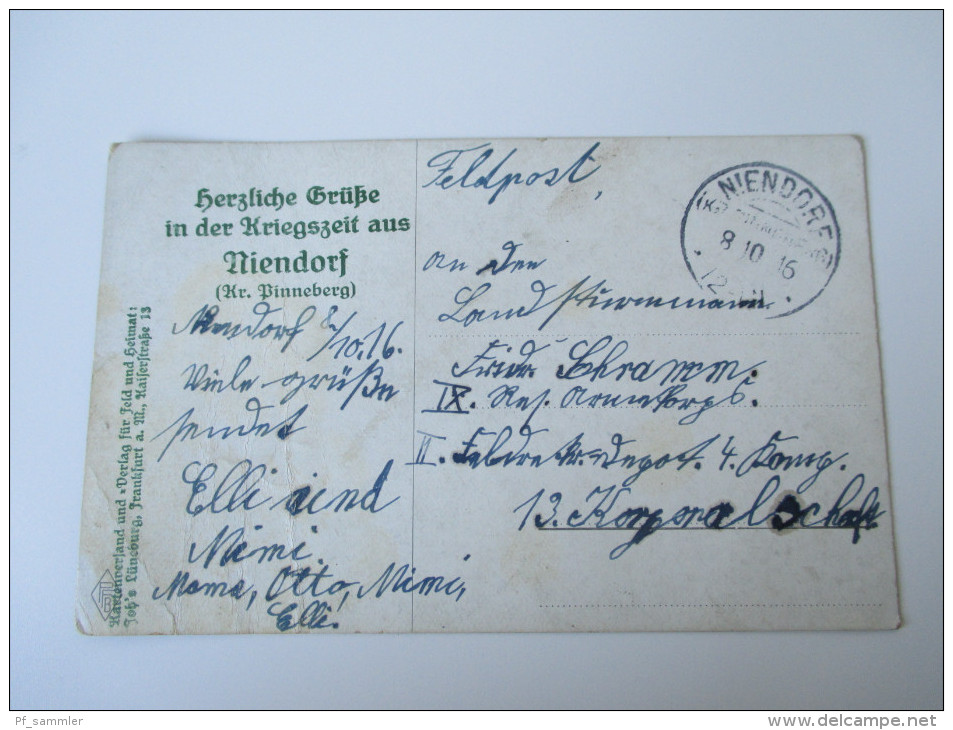 Herzliche Grüße
in der Kriegszeit aus
Niendorf
(Kr. Pinneberg)
Niendorf 8/10.16.
Viele Grüße
sendet
Elli und
Mimi.
Mama, Otto, Mimi,
Elli!
Kartenversand und =Verlag für Feld und Heimat:
Joh's Lüneburg, Frankfurt a. M., Kaiserstraße 13
Feldpost,
NIENDORF
8 10 16
An den
Landsturmmann
Fridr. Schramm.
IX. Res. Armeekorps.
II. Feldrekr.-Depot. 4. Komp.
13. Korporalschaft
Pf_sammler
www.delcampe.net